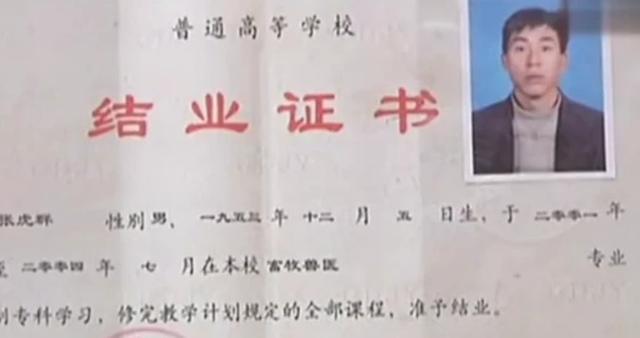 普通高等学校
结业证书
张虎群 性别男、一九五三年十二月五日生,于二〇〇一年
至二〇〇四年七月在本校畜牧兽医专业
制专科学习,修完教学计划规定的全部课程,准予结业。